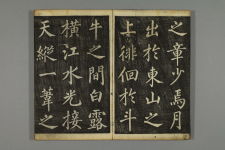 之章少焉月
出於東山之
上徘徊於斗
牛之間白露
橫江水光接
天縱一葦之